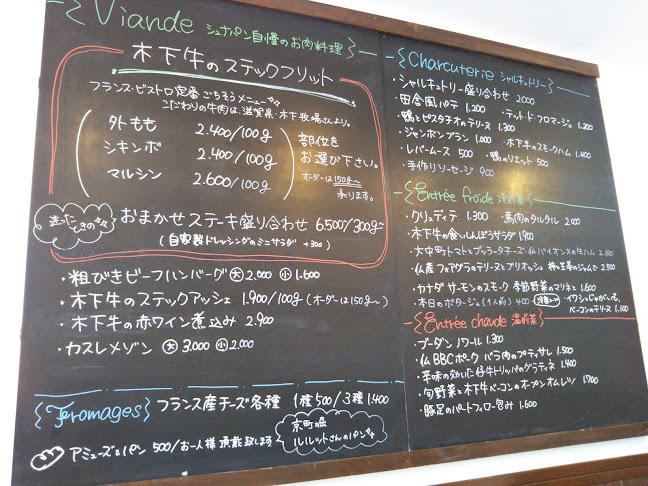 Viande シュナパン自慢のお肉料理
木下牛のステックフリット
フランス・ビストロ定番ごちそうメニュー
こだわりの牛肉は、滋賀県・木下牧場さんより。
外もも 2.400/100g
シキンボ 2.400/100g
マルシン 2.600/100g
部位を
お選び下さい。
オーダーは150g〜
承ります。
迷ったときの
おまかせステーキ盛り合わせ 6.500/300g〜
(自家製ドレッシングのミニサラダ +300)
・粗びきビーフハンバーグ 大 2.000 小 1.600
・木下牛のステックアッシェ 1.900/100g (オーダーは150g〜)
・木下牛の赤ワイン煮込み 2.900
・カスレメゾン 大 3.000 小 2.000
Fromages フランス産チーズ各種 1種500/3種1.400
アミューズ&パン 500/お一人様頂戴致します
京町堀
ルルットさんのパン
Charcuterie シャルキュトリー
・シャルキュトリー盛り合わせ 2.000
・田舎風パテ 1.200 ・テット ド フロマージュ 1.200
・鴨とピスタチオのテリーヌ 1.300
・ジャンボンブラン 1.000 ・木下牛のスモークハム 1.400
・レバームース 500 ・鴨のリエット 500
・手作りソーセージ 900
Entrée froide 冷前菜
・クリュディテ 1.300 ・馬肉のタルタル 2.000
・木下牛の食いしんぼうサラダ 1.900
・大中町トマトとブッラータチーズ・仏バイオンヌの生ハム 2.800
・仏産フォアグラのテリーヌとブリオッシュ 柿と生姜のジャムで 2.500
・カナダサーモンのスモーク 季節野菜のマリネと 1.600
・本日のポタージュ(1人前) 400 ・イワシとじゃがいも、
ベーコンのテリーヌ 1.100
Entrée chaude 温前菜
・ブーダンノワール 1.300
・仏BBCポーク バラ肉のプティサレ 1.500
・辛味の効いた仔牛トリッパのグラティネ 1.400
・旬野菜と木下牛ベーコンのオープンオムレツ 1700
・豚足のパートフィロー包み 1.600